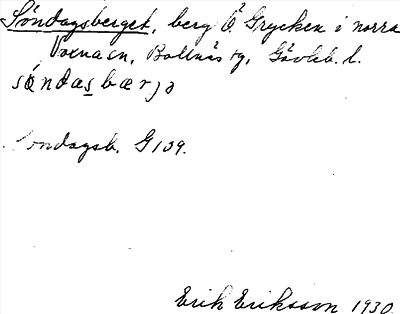 Söndagsberget, berg Ö. Grycken i norra
Voxna sn, Bollnäs tg, Gävleb. l.
söndasbærjə
Söndagsb. G 109.
Erik Eriksson 1930.